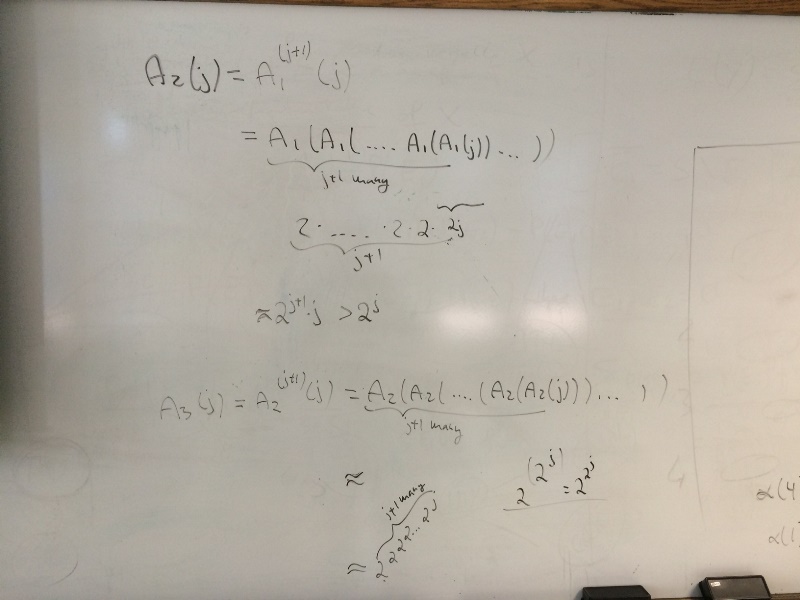 A₂(j) = A₁^(j+1) (j)
= A₁(A₁(.... A₁(A₁(j))... ))
j+1 many
2 · .... · 2 · 2 · 2j
j+1
≈ 2^(j+1) · j > 2^j
A₃(j) = A₂^(j+1) (j) = A₂(A₂(.... (A₂(A₂(j))... ))
j+1 many
≈
2^(2^j) = 2^2^j
j+1 many
≈ 2^2^2^2^...2^j
α(4
α(1)